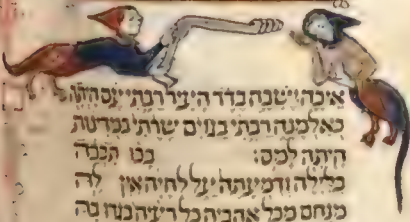 איכה ישבה בדד העיר רבתי עם היתה
כאלמנה רבתי בגוים שרתי במדינות
היתה למס׃ בכו תבכה
בלילה ודמעתה על לחיה אין לה
מנחם מכל אהביה כל רעיה בגדו בה